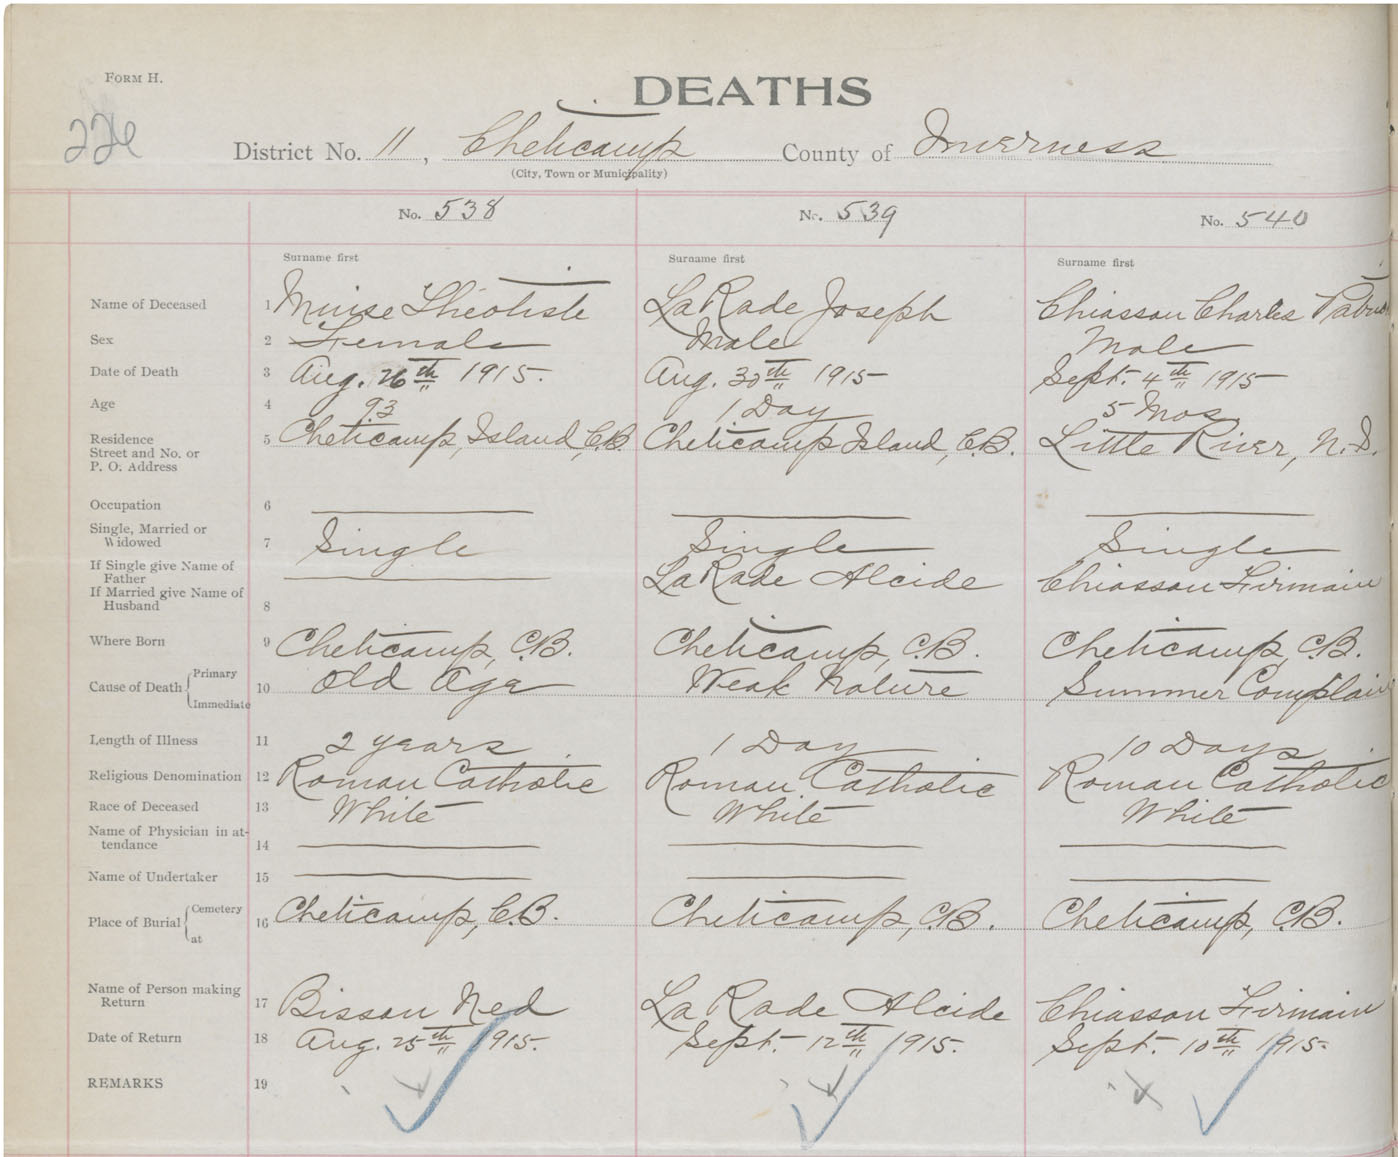 FORM H.
DEATHS
226
District No. 11, Cheticamp County of Inverness
(City, Town or Municipality)
No. 538 No. 539 No. 540
Surname first Surname first Surname first
Name of Deceased 1 Muise Théotiste LaRade Joseph Chiasson Charles
Sex 2 Female Male Male
Date of Death 3 Aug. 26th 1915. Aug. 30th 1915 Sept. 4th 1915
Age 4 93 1 Day 5 Mos
Residence 5 Cheticamp, Island, C.B. Cheticamp Island, C.B. Little River, N.S.
Street and No. or
P. O. Address
Occupation 6
Single, Married or
Widowed 7 Single Single Single
If Single give Name of
Father LaRade Alcide Chiasson Firmain
If Married give Name of
Husband 8
Where Born 9 Cheticamp, C.B. Cheticamp, C.B. Cheticamp, C.B.
Cause of Death { Primary
Immediate 10 Old Age Weak Nature Summer Complain
Length of Illness 11 2 years 1 Day 10 Days
Religious Denomination 12 Roman Catholic Roman Catholic Roman Catholic
Race of Deceased 13 White White White
Name of Physician in at-
tendance 14
Name of Undertaker 15
Place of Burial { Cemetery
at 16 Cheticamp, C.B. Cheticamp, C.B. Cheticamp, C.B.
Name of Person making
Return 17 Bissan Ned LaRade Alcide Chiasson Firmain
Date of Return 18 Aug. 25th 1915. Sept. 12th 1915. Sept. 10th 1915.
REMARKS 19